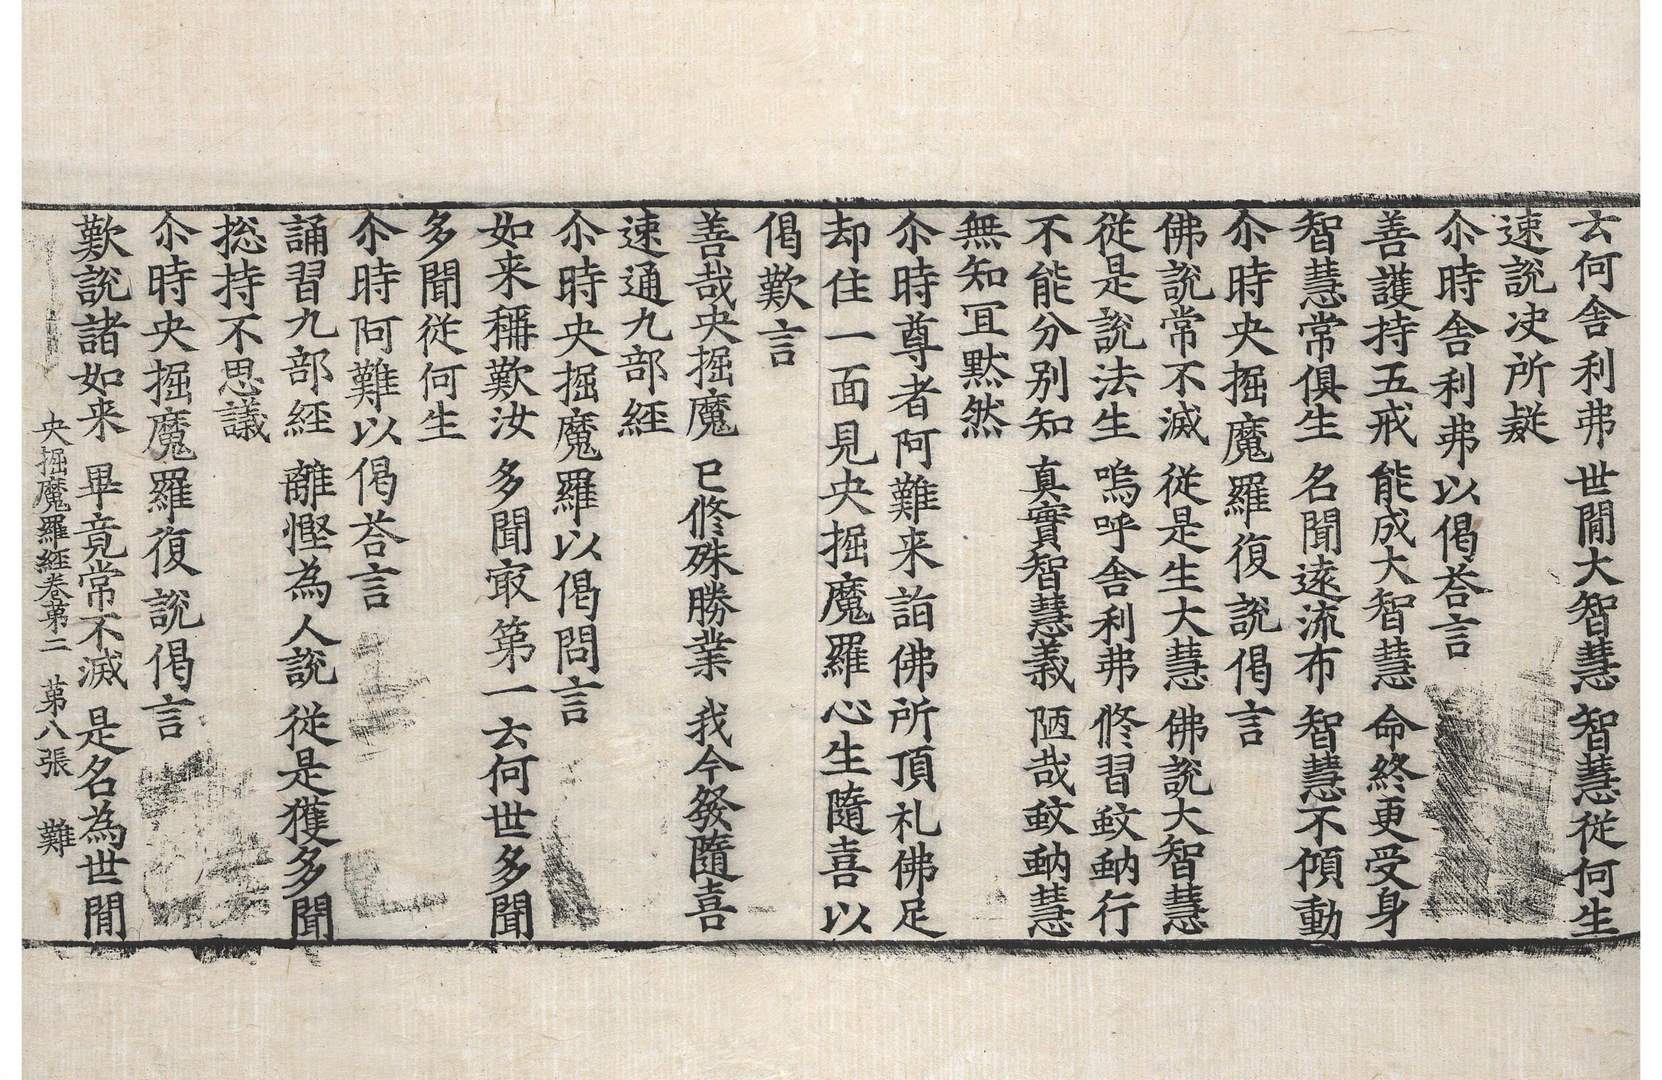 云何舍利弗 世間大智慧 智慧從何生
速說决所疑
尒時舍利弗以偈荅言
善護持五戒 能成大智慧 命終更受身
智慧常俱生 名聞遠流布 智慧不傾動
尒時央掘魔羅復說偈言
佛說常不滅 從是生大慧 佛說大智慧
從是說法生 嗚呼舍利弗 修習蚊蚋行
不能分別知 真實智慧義 陋哉蚊蚋慧
無知冝默然
尒時尊者阿難来詣佛所頂礼佛足
却住一面見央掘魔羅心生隨喜以
偈歎言
善哉央掘魔 已修殊勝業 我今發隨喜
速通九部經
尒時央掘魔羅以偈問言
如来稱歎汝 多聞㝡第一 云何世多聞
多聞從何生
尒時阿難以偈荅言
誦習九部經 離慳為人說 從是獲多聞
捴持不思議
尒時央掘魔羅復說偈言
歎說諸如来 畢竟常不滅 是名為世間
央掘魔羅經卷苐二 苐八張 難